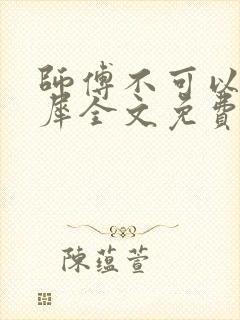 師傅不可以
犀全文免費
陳蘊萱